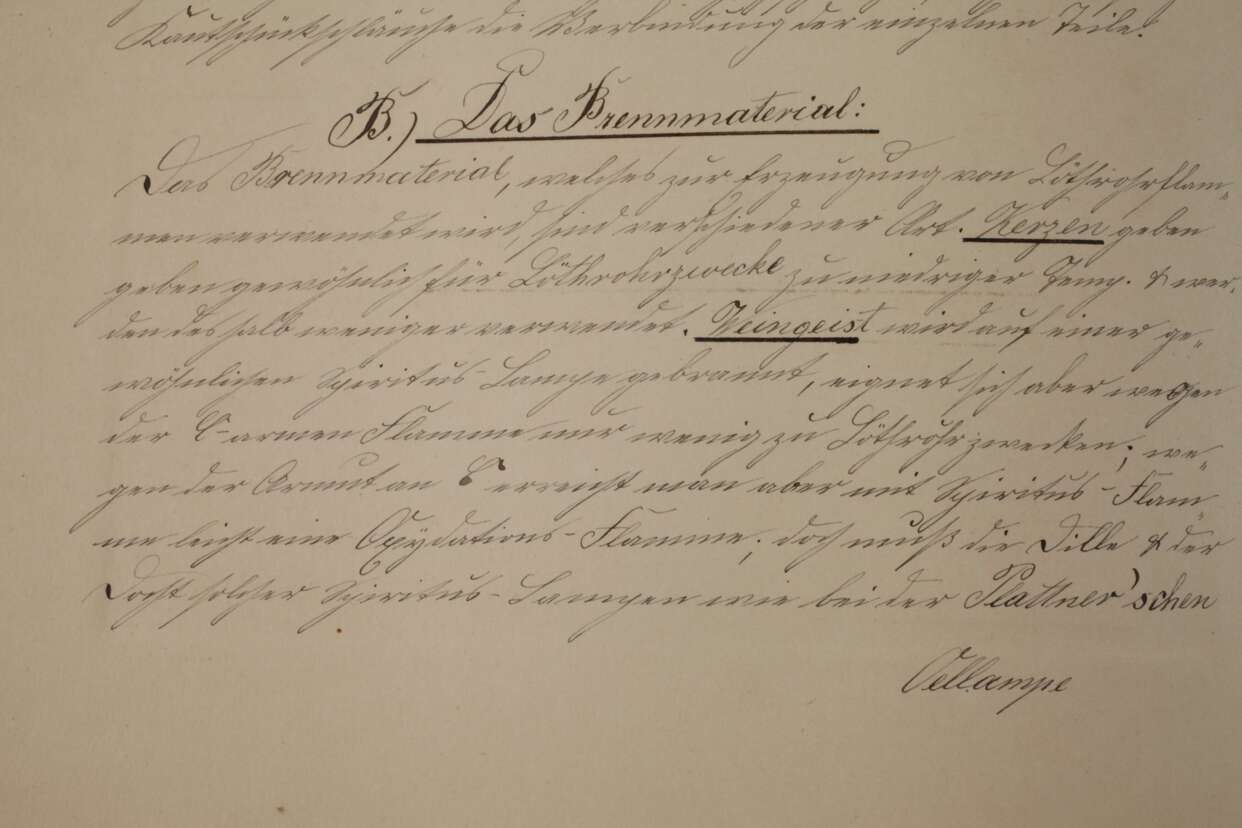 Kautschukschläuche die Verbindung der einzelnen Teile.
B.) Das Brennmaterial:
Das Brennmaterial, welches zur Erzeugung von Löthrohrflam„
men verwendet wird, sind verschiedener Art. Kerzen geben
geben gewöhnlich für Löthrohrzwecke zu niedriger Temp. & wer„
den deshalb weniger verwendet. Weingeist wird auf einer ge„
wöhnlichen Spiritus-Lampe gebrannt, eignet sich aber wegen
der C-armen Flamme nur wenig zu Löthrohrzwecken; we„
gen der Armut an C erreicht man aber mit Spiritus-Flam„
me leicht eine Oxydations-Flamme; doch muß die Dille & der
Docht solcher Spiritus-Lampen wie bei der Plattner'schen
Oellampe